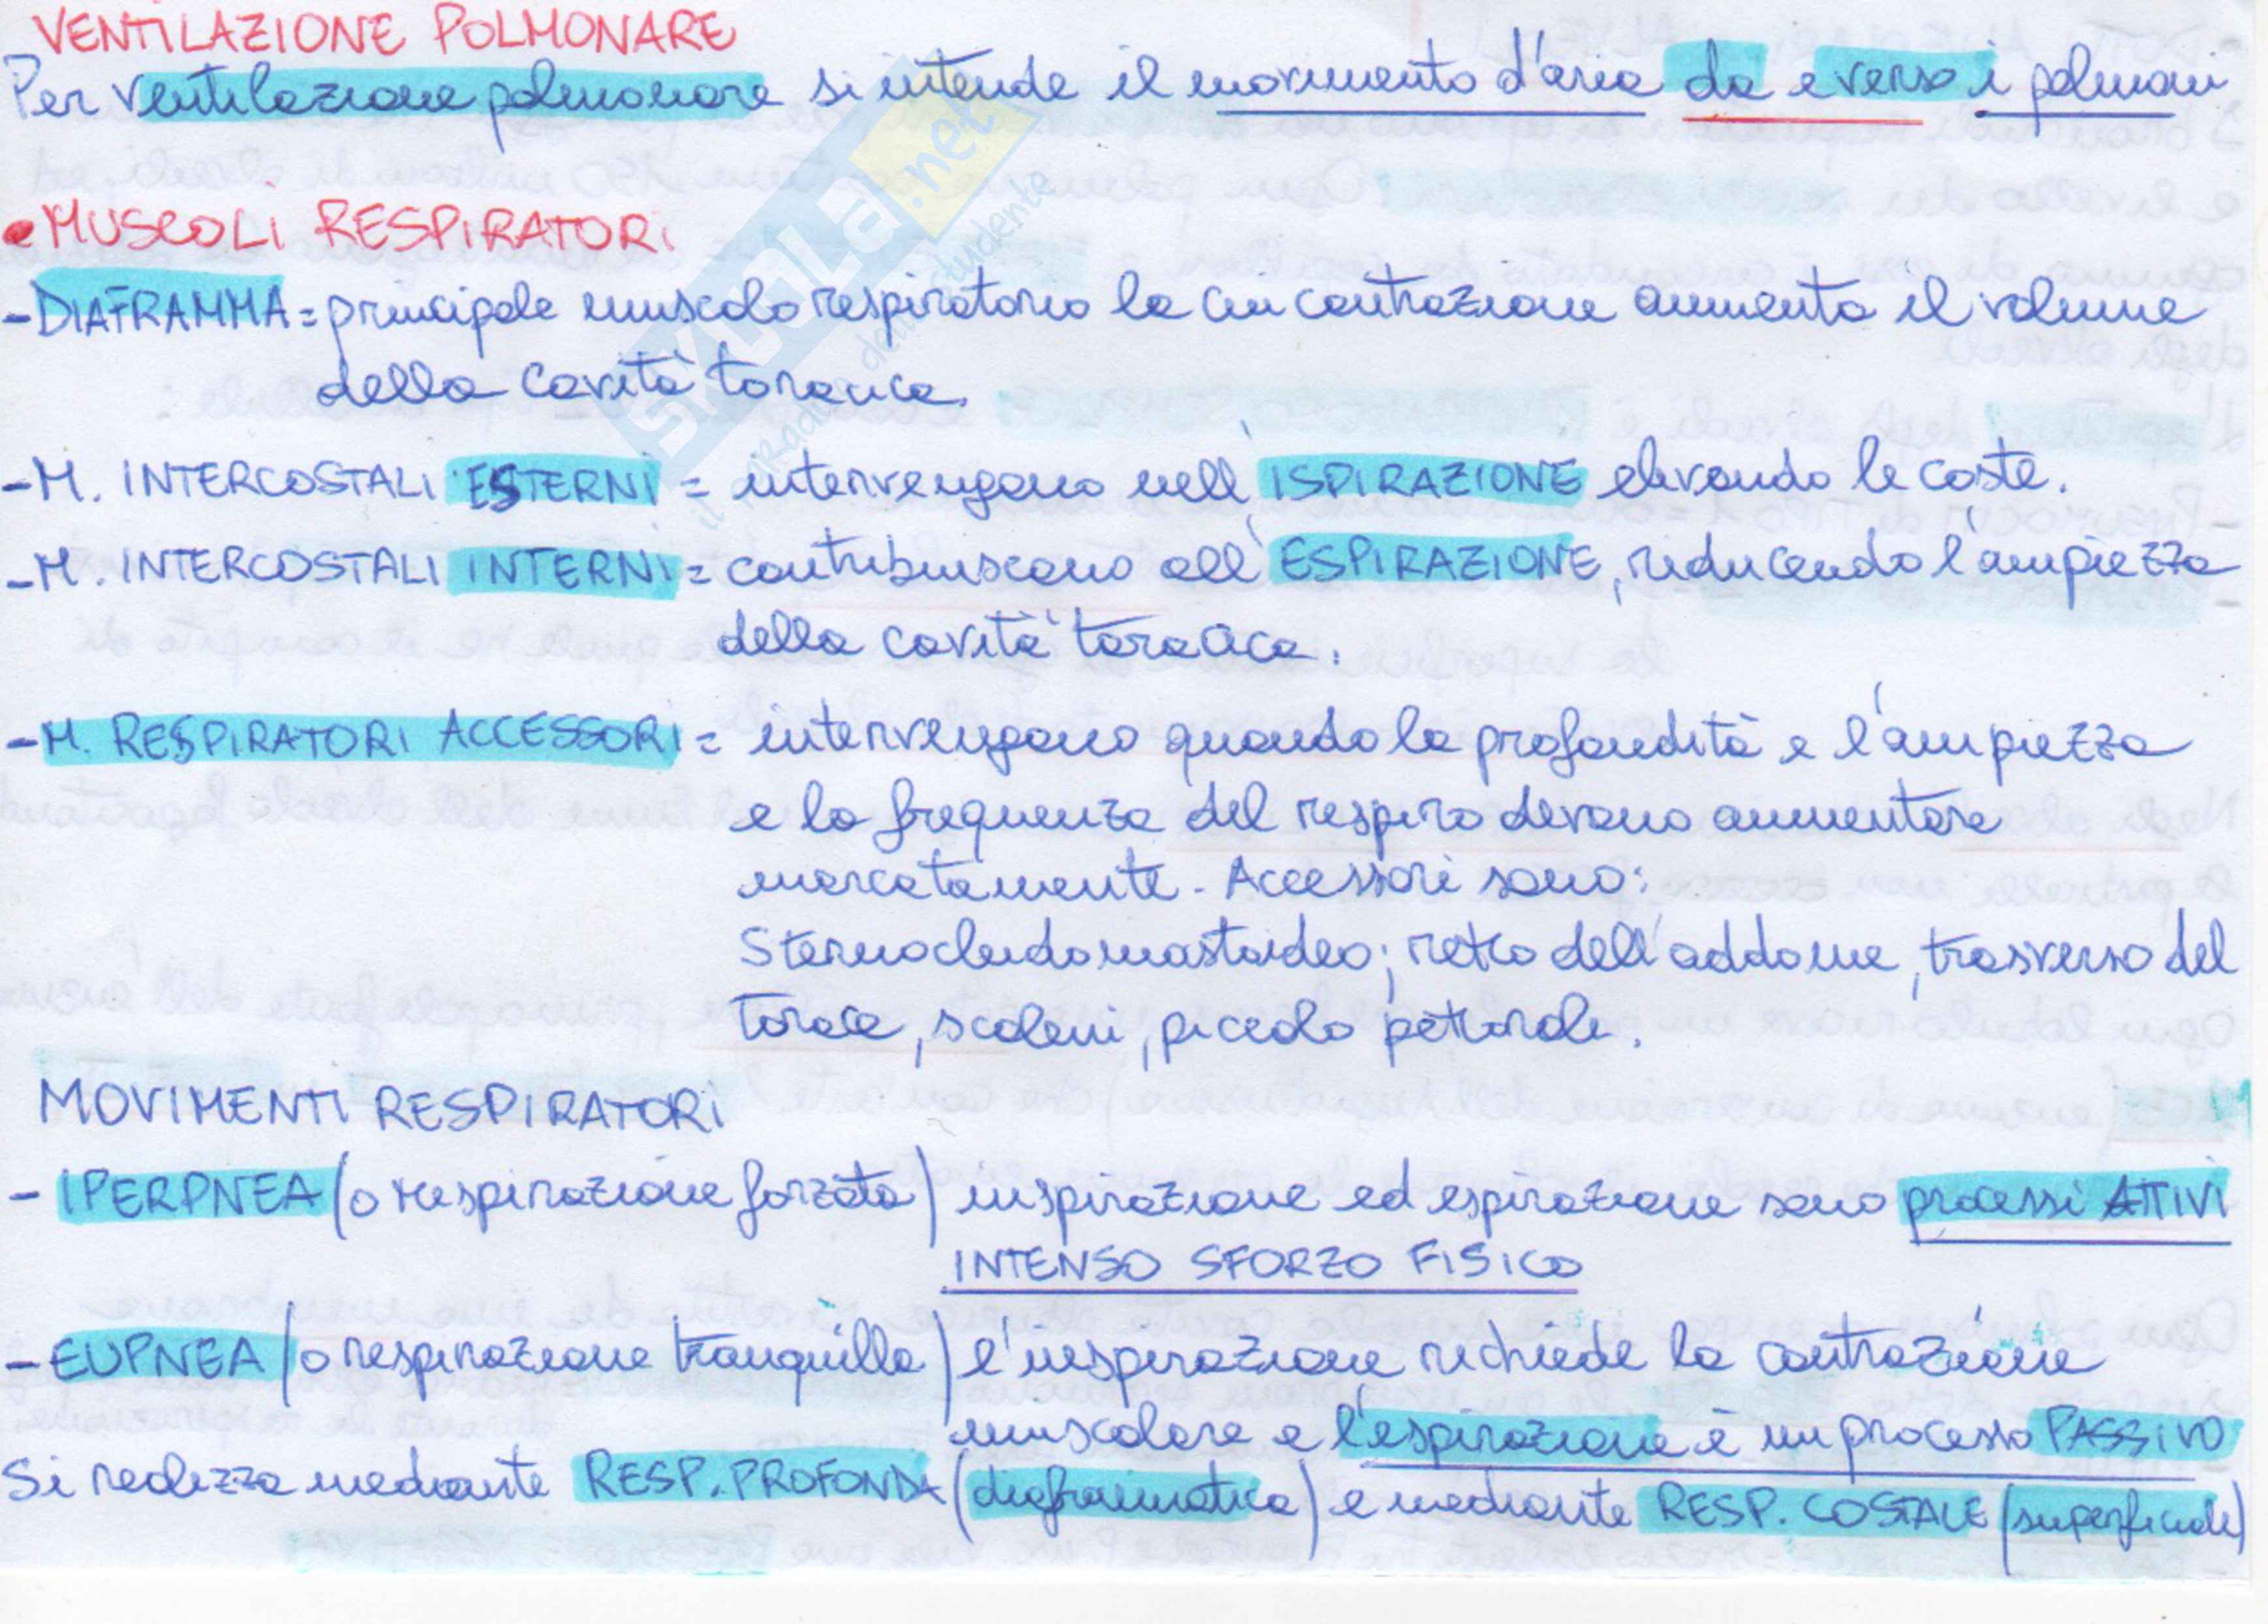 VENTILAZIONE POLMONARE
Per ventilazione polmonare si intende il movimento d'aria da e verso i polmoni
• MUSCOLI RESPIRATORI
- DIAFRAMMA = principale muscolo respiratorio la cui contrazione aumenta il volume
della cavità toracica.
- M. INTERCOSTALI ESTERNI = intervengono nell'ISPIRAZIONE elevando le coste.
- M. INTERCOSTALI INTERNI = contribuiscono all'ESPIRAZIONE, riducendo l'ampiezza
della cavità toracica.
- M. RESPIRATORI ACCESSORI = intervengono quando la profondità e l'ampiezza
e la frequenza del respiro devono aumentare
marcatamente. Accessori sono:
Sternocleidomastoideo; retto dell'addome, trasverso del
torace, scaleni, piccolo pettorale.
MOVIMENTI RESPIRATORI
- IPERPNEA (o respirazione forzata) inspirazione ed espirazione sono processi ATTIVI
INTENSO SFORZO FISICO
- EUPNEA (o respirazione tranquilla) l'inspirazione richiede la contrazione
muscolare e l'espirazione è un processo PASSIVO
Si realizza mediante RESP. PROFONDA (diaframmatica) e mediante RESP. COSTALE (superficiale)
SKUOLA.net
il paradiso dello studente